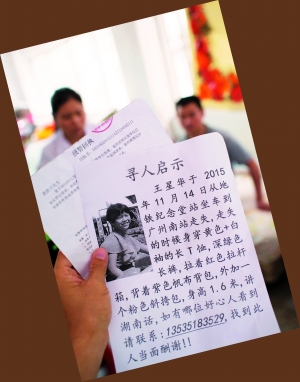 寻人启示
王星华于 2015
年 11 月 14 日从地
铁纪念堂站坐车到
广州南站走失，走失
的时候身穿黄色+白
袖的长 T 恤，深绿色
长裤，拉着红色拉杆
箱，背着紫色帆布背包，外加一
个粉色斜挎包，身高 1.6 米，讲
湖南话，如有哪位好心人看到
请联系：13535183529，找到此
人当面酬谢！！